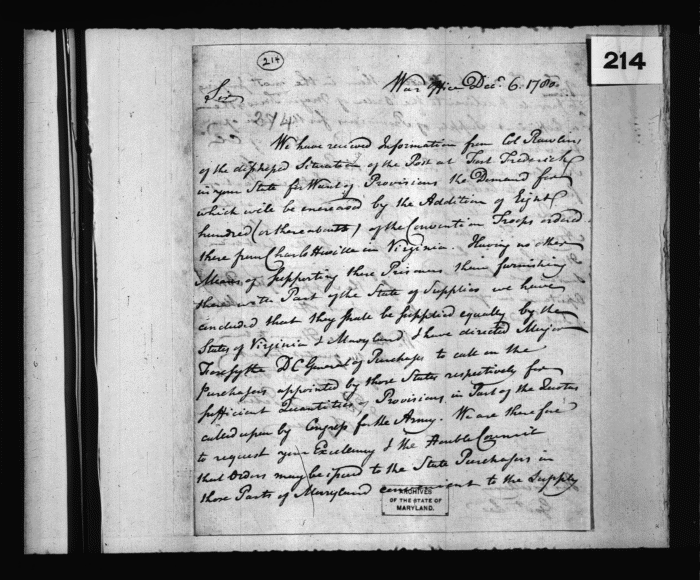 214
214
War Office Decr. 6. 1780.
Sir
314
We have received Information from Col Rawlins
of the distressed Situation of the Post at Fort Frederick
in your State for Want of Provisions the Demand for
which will be encreased by the Addition of Eight
hundred (or thereabouts) of the Convention Troops ordered
there from Charlottesville in Virginia. Having no other
Means of supporting these Prisoners than furnishing
them with Part of the State of Supplies we have
concluded that they shall be supplied equally by the
States of Virginia & Maryland & have directed Major
Forsythe D C General of Purchases to call on the
Purchasers appointed by those States respectively for
sufficient Quantities of Provisions in Part of the Quotas
called upon by Congress for the Army. We are therefore
to request your Excellency & the Honble Council
that Orders may be issued to the State Purchasers in
those Parts of Maryland convenient to the Supply
ARCHIVES
OF THE STATE OF
MARYLAND.